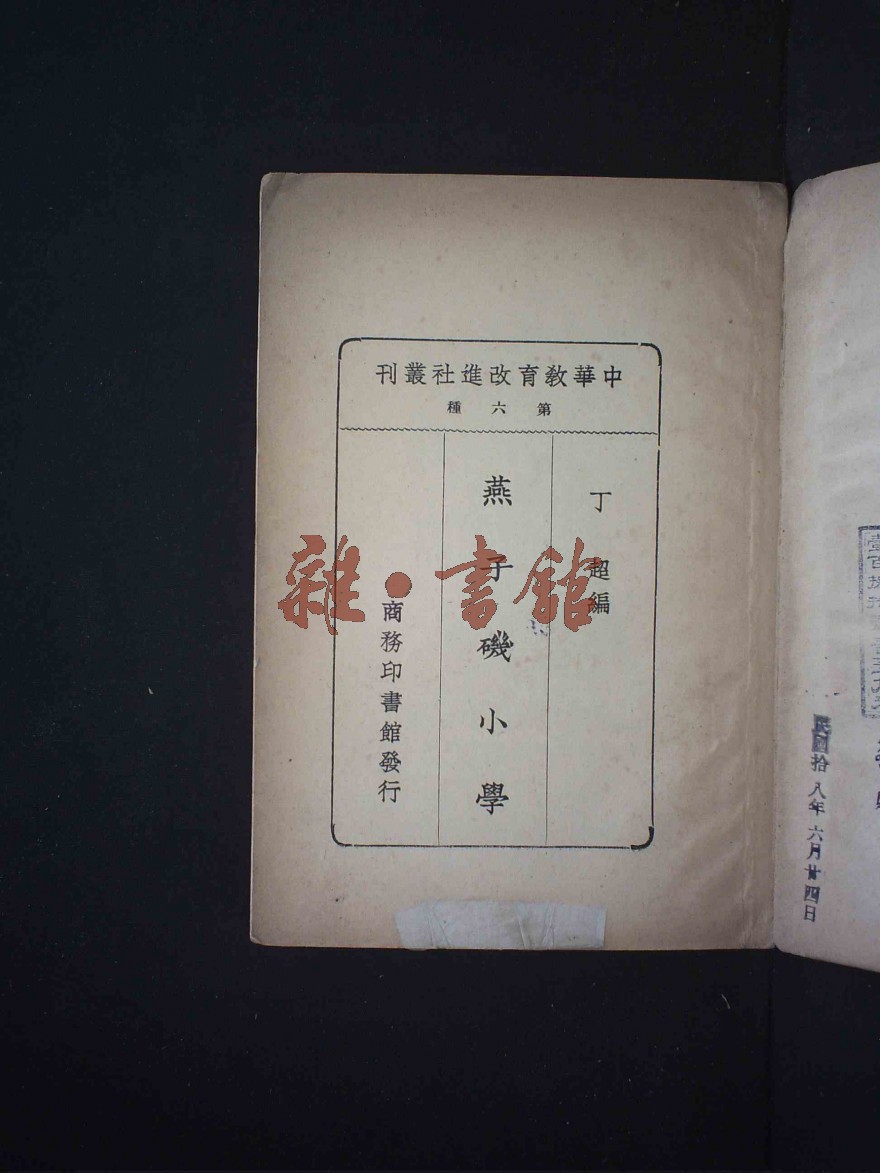 中華教育改進社叢刊
第六種
丁超編
燕子磯小學
商務印書館發行
雜·書館
民國拾八年六月廿四日